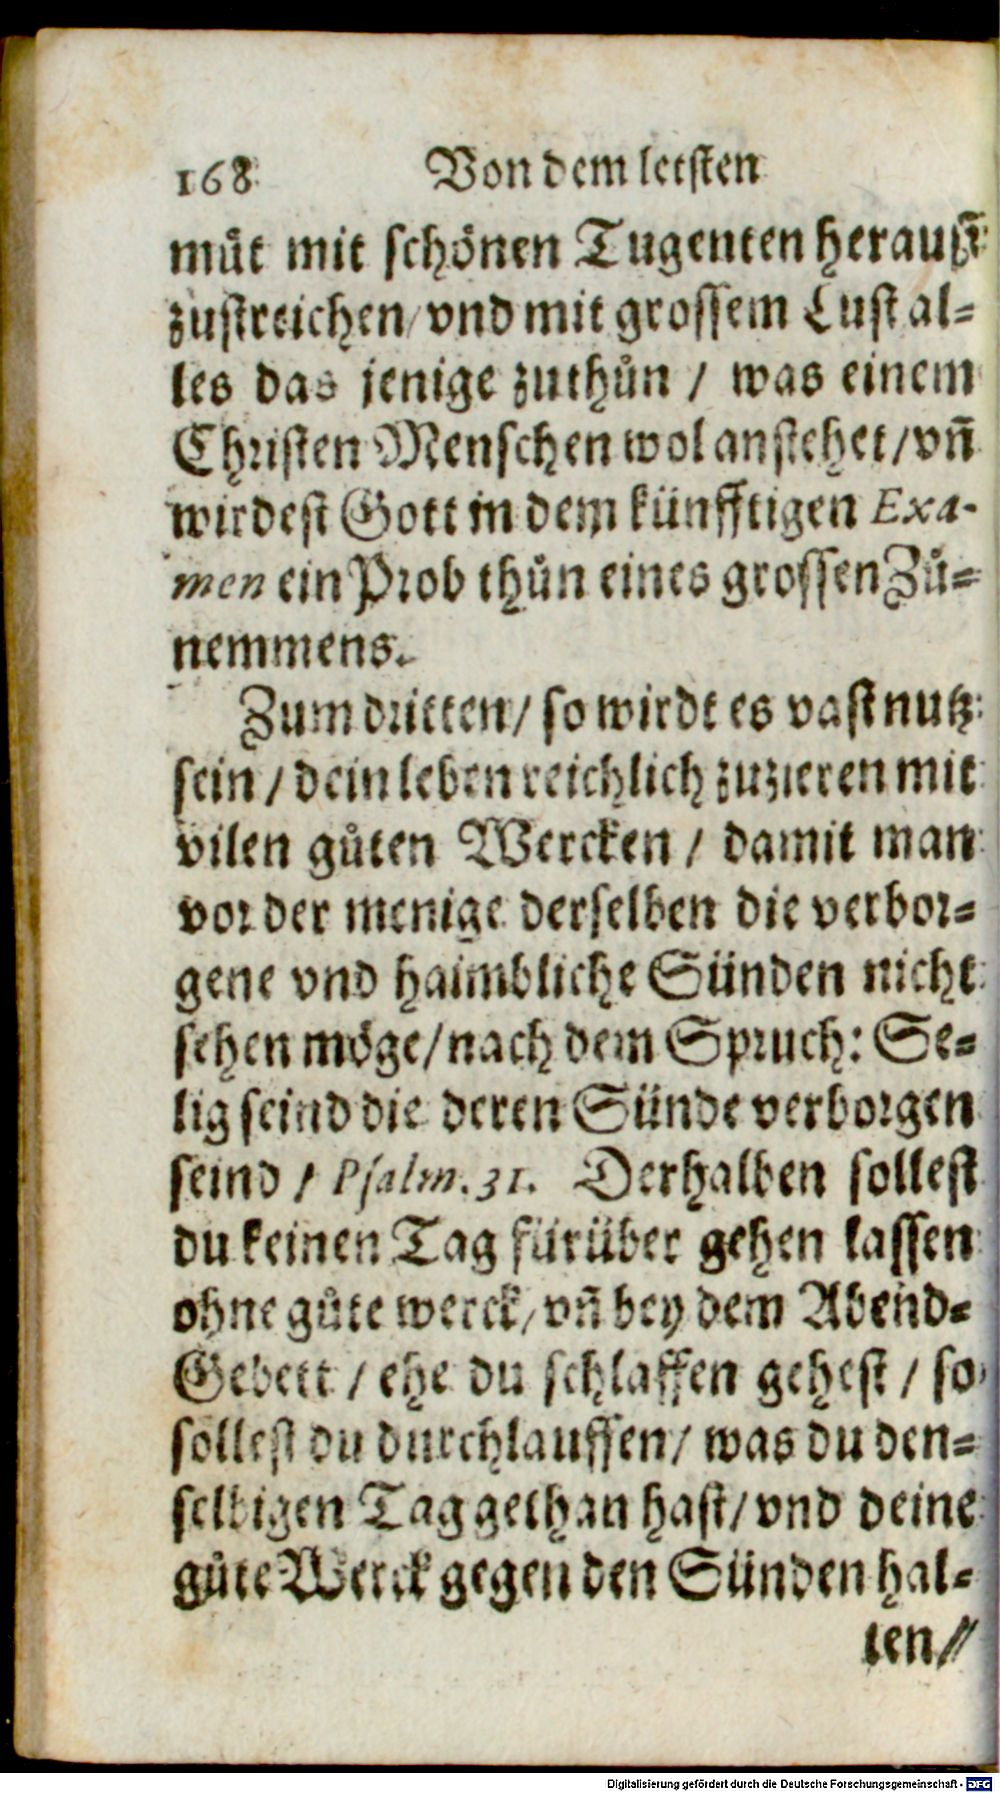 168 Von dem letsten
můt mit schönen Tugenten herauß
zustreichen/ vnd mit grossem Lust al-
les das jenige zuthůn / was einem
Christen Menschen wol anstehet/ vñ
wirdest Gott in dem künfftigen Exa-
men ein Prob thůn eines grossen Zů-
nemmens.
Zum dritten/ so wirdt es vast nutz
sein / dein leben reichlich zuzieren mit
vilen gůten Wercken / damit man
vor der menige derselben die verbor-
gene vnd haimbliche Sünden nicht
sehen möge/ nach dem Spruch: Se-
lig seind die deren Sünde verborgen
seind / Psalm. 31. Derhalben sollest
du keinen Tag fürüber gehen lassen
ohne gůte werck/ vñ bey dem Abend-
Gebett / ehe du schlaffen gehest / so
sollest du durchlauffen/ was du den-
selbigen Tag gethan hast/ vnd deine
gůte Werck gegen den Sünden hal-
ten//
Digitalisierung gefördert durch die Deutsche Forschungsgemeinschaft - DFG